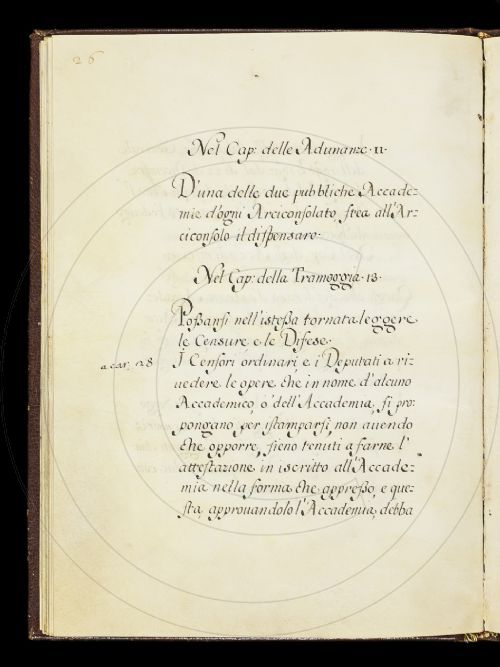 26
Nel Cap: delle Adunanze · 11 ·
D'una delle due pubbliche Accade=
mie d'ogni Arciconsolato, stea all'Ar=
ciconsolo il dispensare ·
Nel Cap: della Tramoggia · 13 ·
Possansi nell'istessa tornata leggere
le Censure e le Difese ·
a car: 28
I Censori ordinari e i Deputati a ri=
uedere le opere che in nome d'alcuno
Accademico, o' dell'Accademia, si pro=
pongano per istamparsi, non auendo
che opporre, sieno tenuti a farne l'
attestazione in iscritto all'Accade=
mia nella forma che appresso, e que=
sta, approuandolo l'Accademia, debba